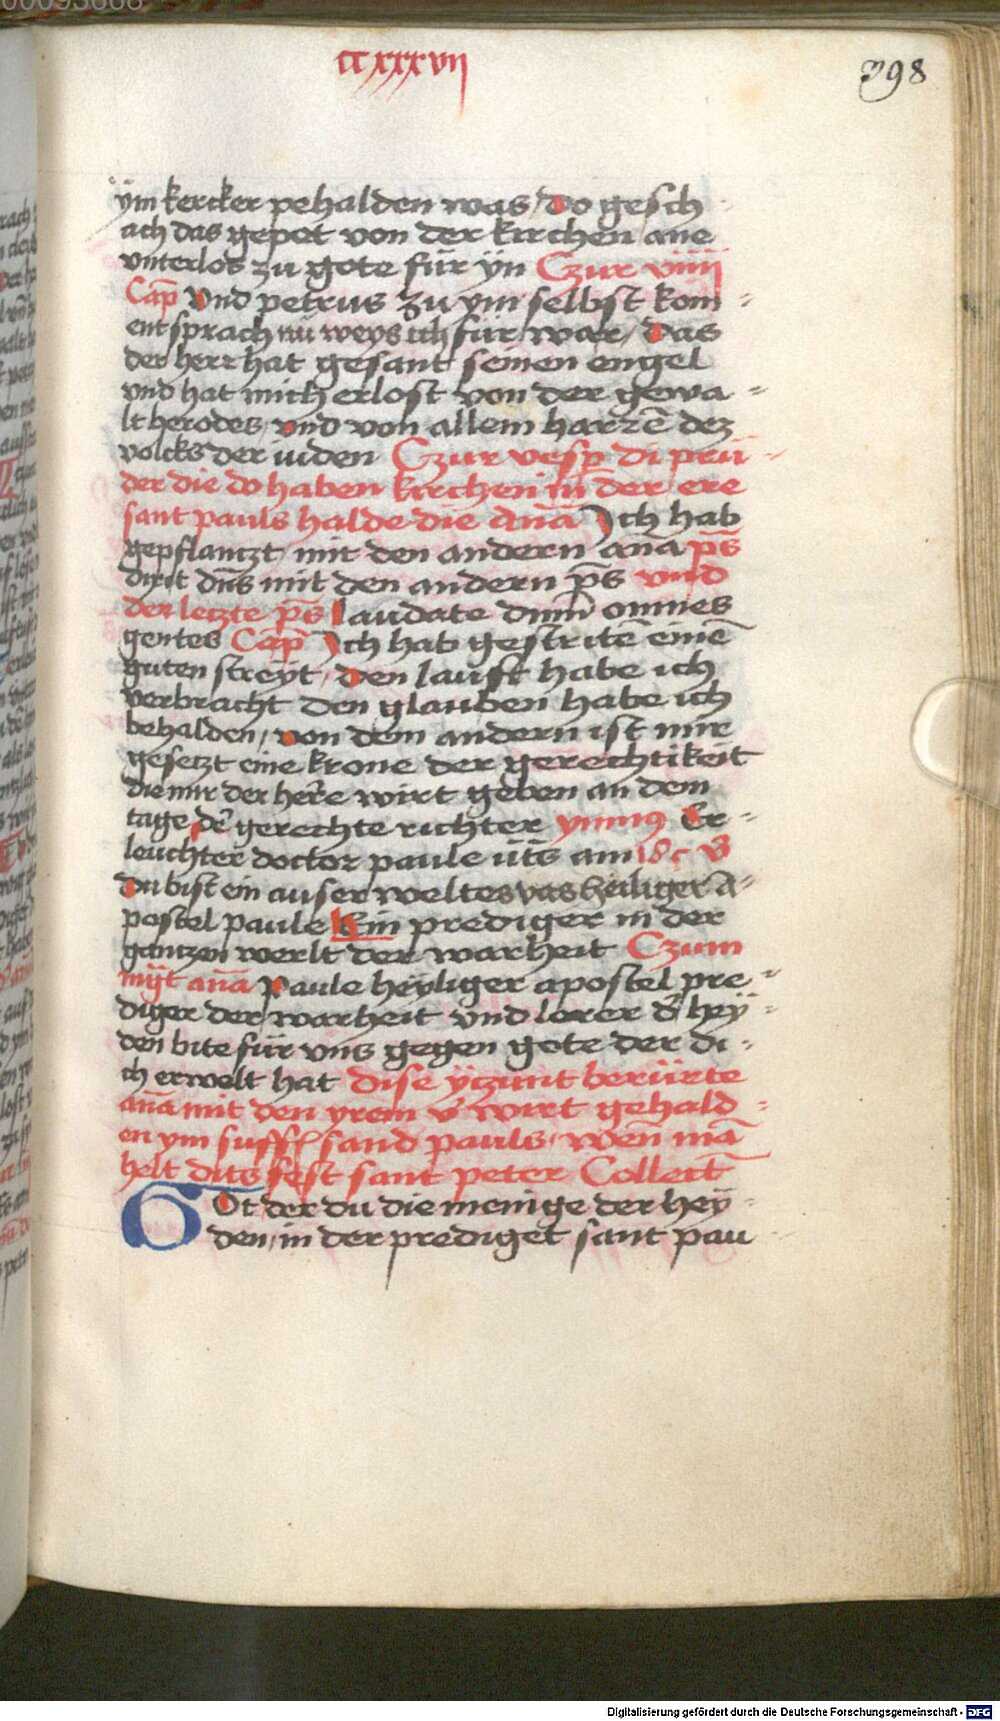 ccxxxvii
398
ym kercker pehalden was / do gesch
ach das gepet von der kirchen ane
vnterlos zu gote für ÿn Czur viiij
Cap̄ Vnd petrus zu ym selbst kom -
ent sprach nu weys ich für war / das
der herr hat gesant seinen engel
vnd hat mich erlost von der gewa -
lt herodes / vnd von allem harrē dez
volcks der iuden Czur vesp̄ di prü -
der die do haben kirchen in der ere
sant pauls halde die Anā Ich hab
gepflantzt mit den andern anā p̄s
dixit dn̄s mit den andern p̄s vnd
der letzte p̄s laudate dn̄m omnes
gentes Cap̄ Ich hab gestritē einē
guten streÿt / den lauft habe ich
verbracht den glauben habe ich
behalden / von dem andern ist mir
gesetzt eine krone der gerechtikeit
die mir der herre wirt geben an dem
tage der gerechte richter ymnus Er -
leuchter doctor paule
Du bist ein auserweltes vas heiliger a -
postel paule Ein prediger in der
gantzen werlt der warheit Czum
mg̃t anā Paule heyliger apostel pre -
diger der warheit vnd lerer d' heÿ -
den bite für vns gegen gote der di -
ch erwelt hat dise yczunt berürte
anā mit den yrem v' wirt gehald -
en ym suff̄ sand pauls / wen̄ mā
helt dits fest sant peter Collect̄
GOt der du die menige der hey -
den / in der prediget sant pau
Digitalisierung gefördert durch die Deutsche Forschungsgemeinschaft - DFG